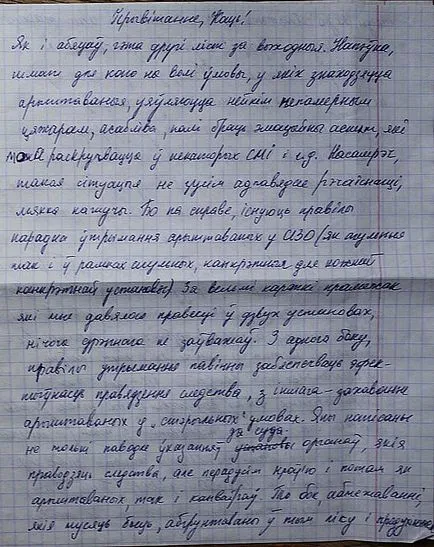 Прывітанне, Каць!
Як і абяцаў, гэта другі ліст за выходныя. Напэўна,
шмат для каго на волі ўмовы, у якіх знаходзяцца
арыштаваныя, уяўляюцца нейкім непамерным
цяжарам, асабліва, калі браць эмацыйны аспект, які
можа раскручвацца ў некаторых СМІ і г.д. Насамрэч,
такая сітуацыя не зусім адпавядае рэчаіснасці,
мякка кажучы. Бо на справе, існуюць правілы
парадка ўтрымання арыштаваных у СІЗО (як агульные
так і ў рамках
канкрэтнай установы). За вельмі кароткі прамежак
які мне давялося правесці ў дзвух установах,
нічога дрэннага не заўважаў. З аднаго боку,
правілы утрымання павінны забяспечваць эфек-
тыўнасць правядзення следства, з іншага - захаванне
арыштаваных у "стэрыльных" умовах. Яны напісаны
да суда
не толькі паводле ўказанняў органаў, якія
праводзяць следства, але перадусім крыўёю і потам як
арыштаваных, так і канваіраў. То бок, абмежаванні,
якія мусяць быць, абгрунтаваны ў тым ліку і